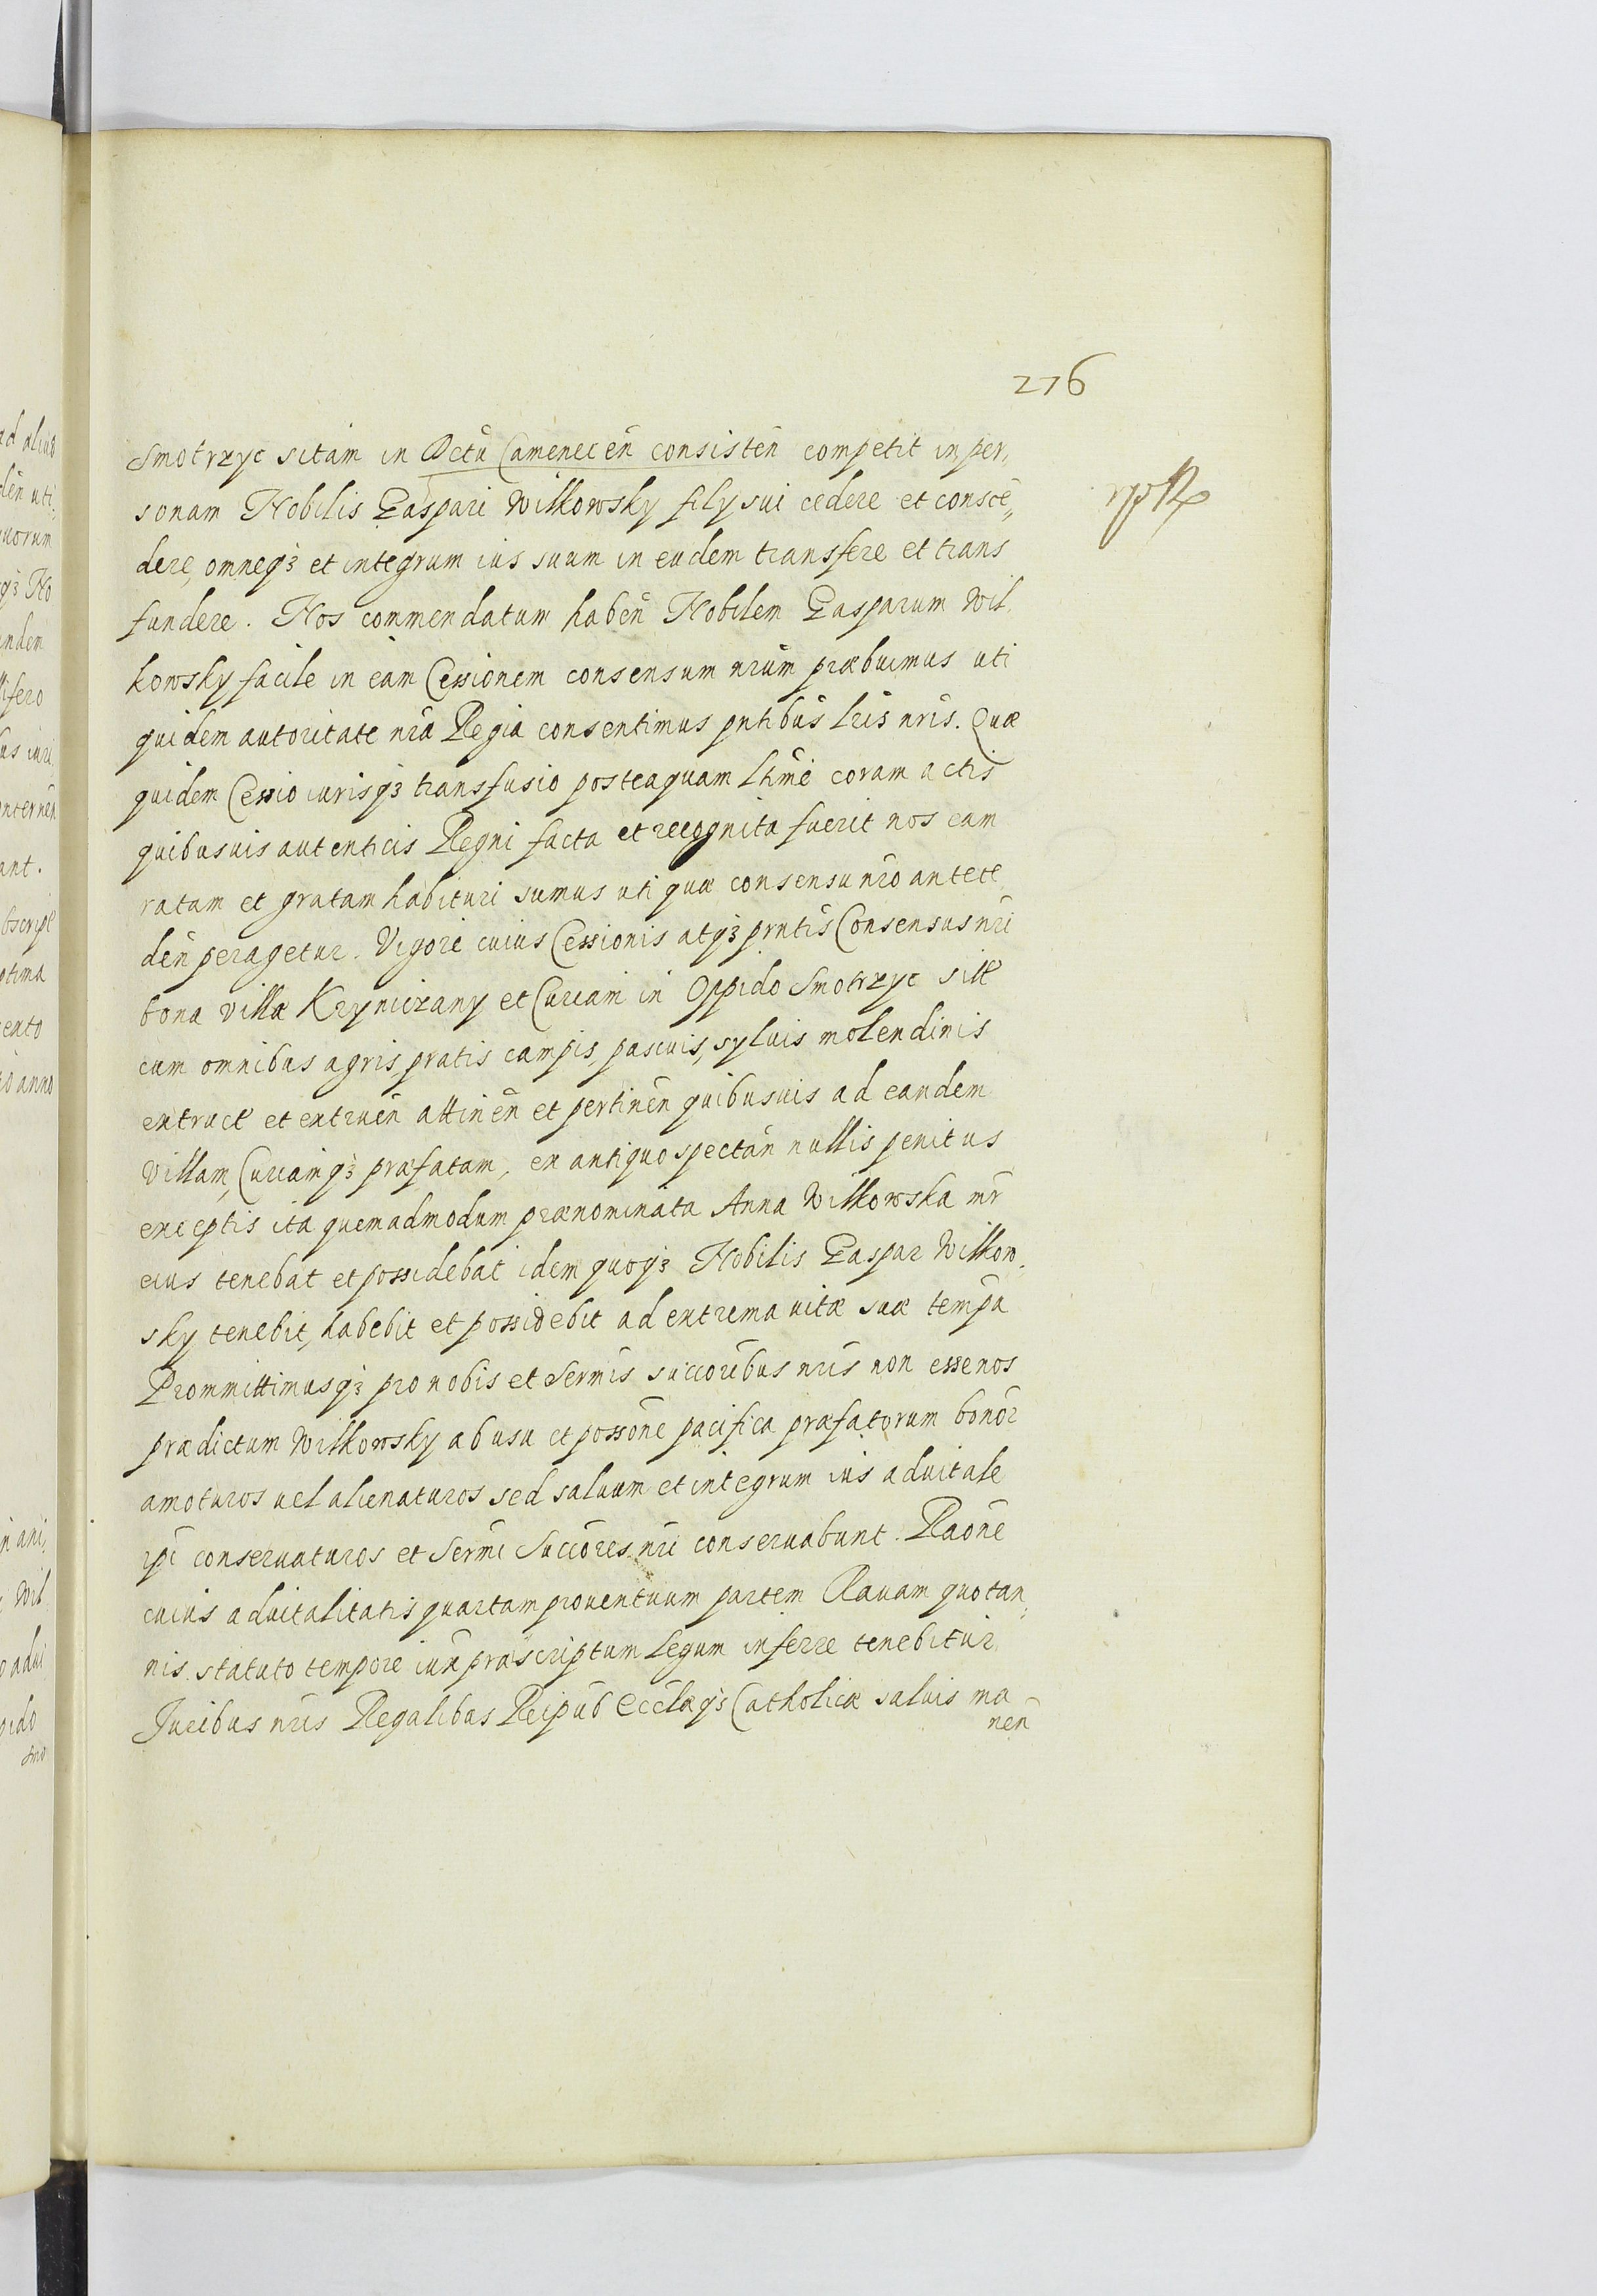 276
Smotrzyc sitam in Dctu Camenecen̄ consisten̄ competit in per,
sonam Nobilis Gaspari Wilkowsky filÿ sui cedere et conscē„
dere, omneqꝫ et integrum ius suum in eudem transfere et trans
fundere. Nos commendatum haben̄ Nobilem Gasparum Wil.
kowsky facile in eam Cessionem consensum nr̄um præbuimus uti
quidem autoritate nr̄a Regia consentimus pn̄tibus lr̄is nr̄is. Quæ
quidem Cessio iurisqꝫ transfusio posteaquam lt̄ime coram actis
quibusuis autenticis Regni facta et recognita fuerit nos eam
ratam et gratam habituri sumus uti quæ consensu nr̄o antece
den̄ peragetur. Vigore cuius Cessionis atqꝫ prn̄tis Consensus nr̄i
bona villæ Kryniczany et Curiam in Oppido Smotrzyc sitt
cum omnibus agris, pratis campis, pascuis, syluis molendinis
extruct et extruen̄ attinen̄ et pertinen̄ quibusuis ad eandem
Villam, Curiamqꝫ præfatam, ex antiquo spectan̄ nullis penitus
exceptis ita quemadmodum prænominata Anna Wilkowska mr̄
eius tenebat et possidebat idem quoqꝫ Nobilis Gaspar Wilkow.
sky tenebit, habebit et possidebit ad extrema uitæ suæ tempa
Prommittimusqꝫ pro nobis et Serm̄is succoribus nr̄is non esse nos
prædictum Wilkowsky ab usu et possōne pacifica præfatorum bonor̄
amoturos uel alienaturos sed saluum et integrum ius aduitale
ip̄i conseruaturos et Serm̄i Succores nr̄i conseruabunt. Raōne
cuius aduitalitatis quartam prouentuum partem Rauam quotan,
nis statuto tempore iux̄a præscriptum legum inferre tenebitur
Juribus nr̄is Regalibus Reipub Ecclæqꝫ Catholicæ saluis ma
nen̄